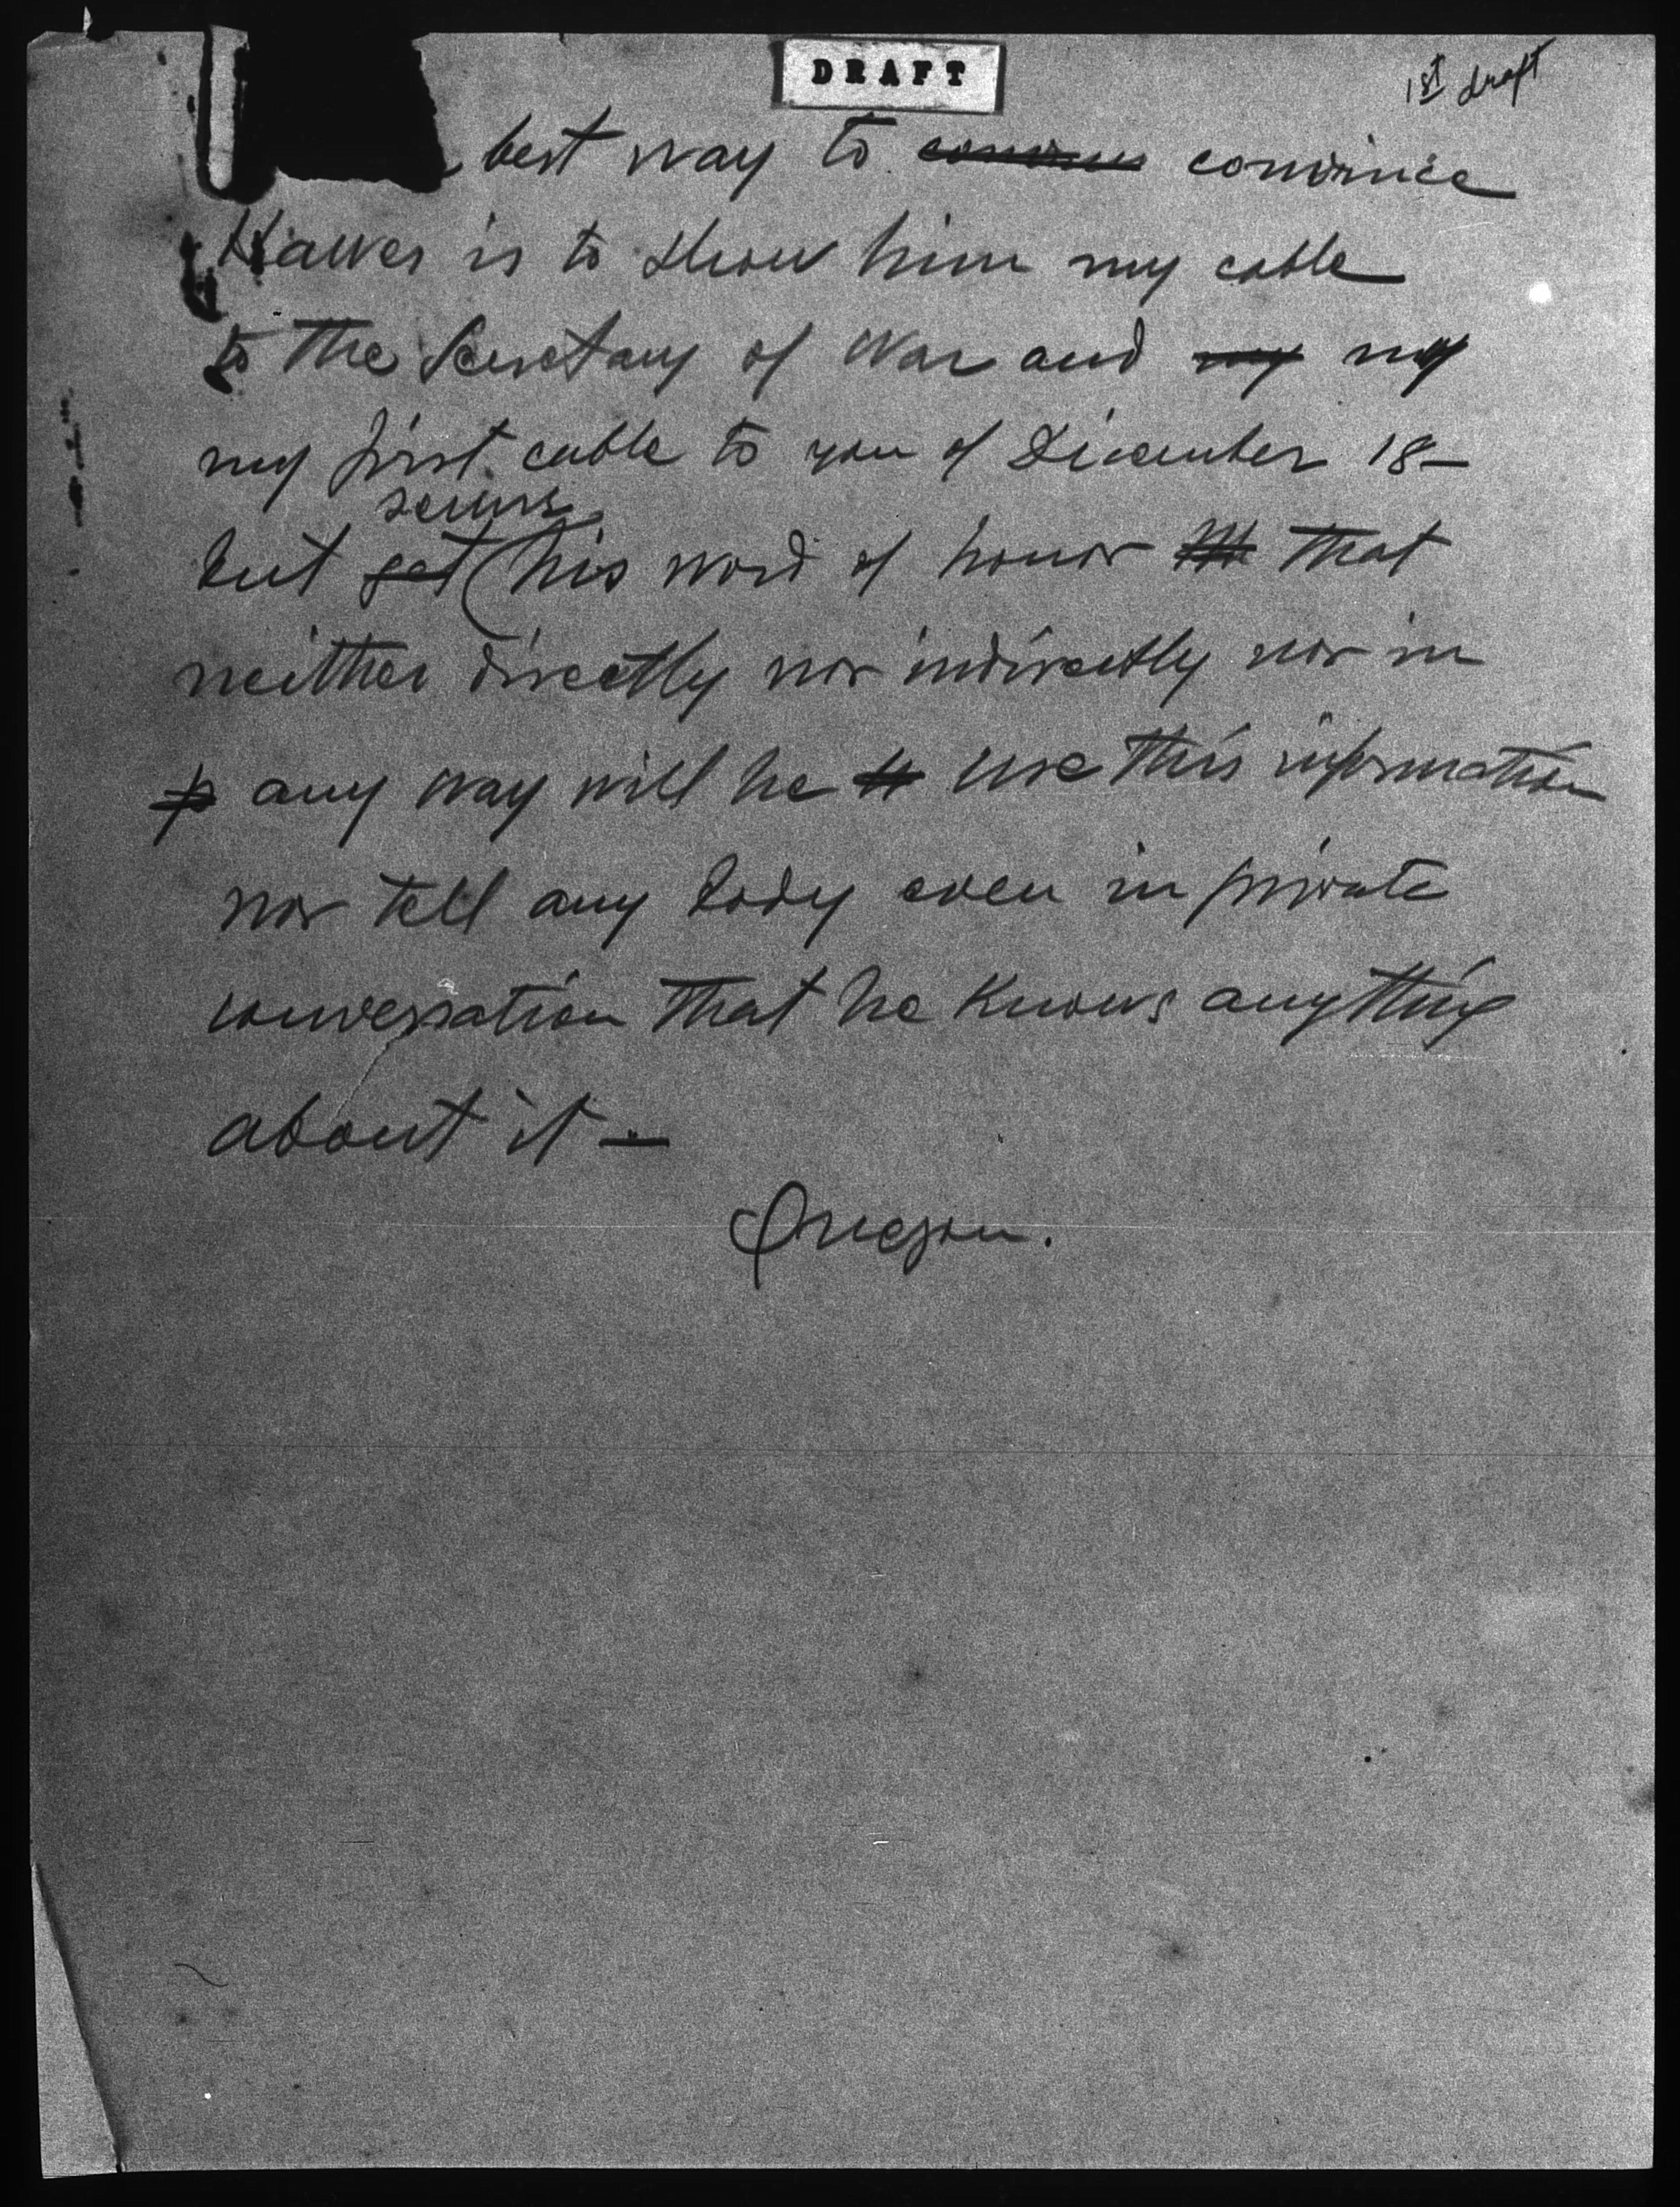 DRAFT
1st draft
best way to convince
Hawes is to show him my cable
to the Secretary of War and my my
my first cable to you of December 18—
secure
but get his word of honor that
neither directly nor indirectly nor in
any way will he use this information
nor tell any body even in private
conversation that he knows anything
about it —
Quezon.